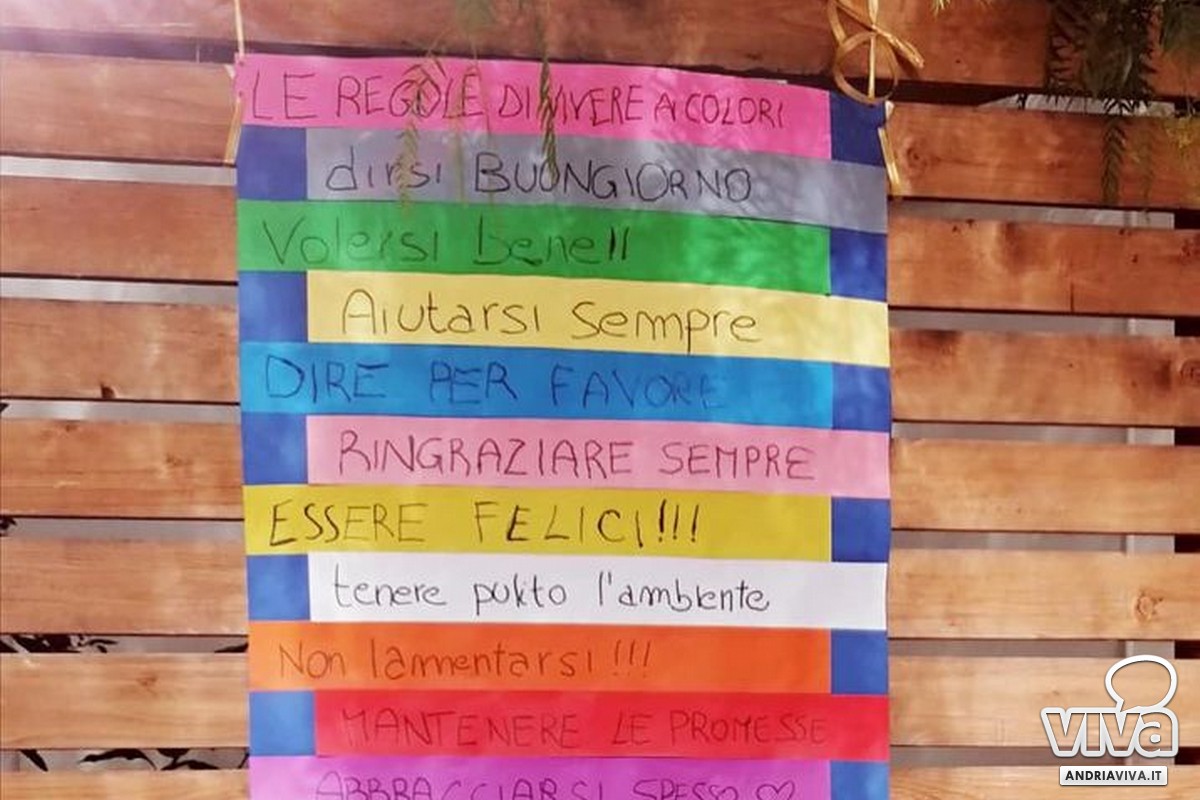 LE REGOLE DI VIVERE A COLORI
dirsi BUONGIORNO
Volersi bene!!
Aiutarsi sempre
DIRE PER FAVORE
RINGRAZIARE SEMPRE
ESSERE FELICI!!!
tenere pulito l'ambiente
Non lamentarsi!!!
MANTENERE LE PROMESSE
ABBRACCIARSI SPESSO ♡
viva
ANDRIAVIVA.IT